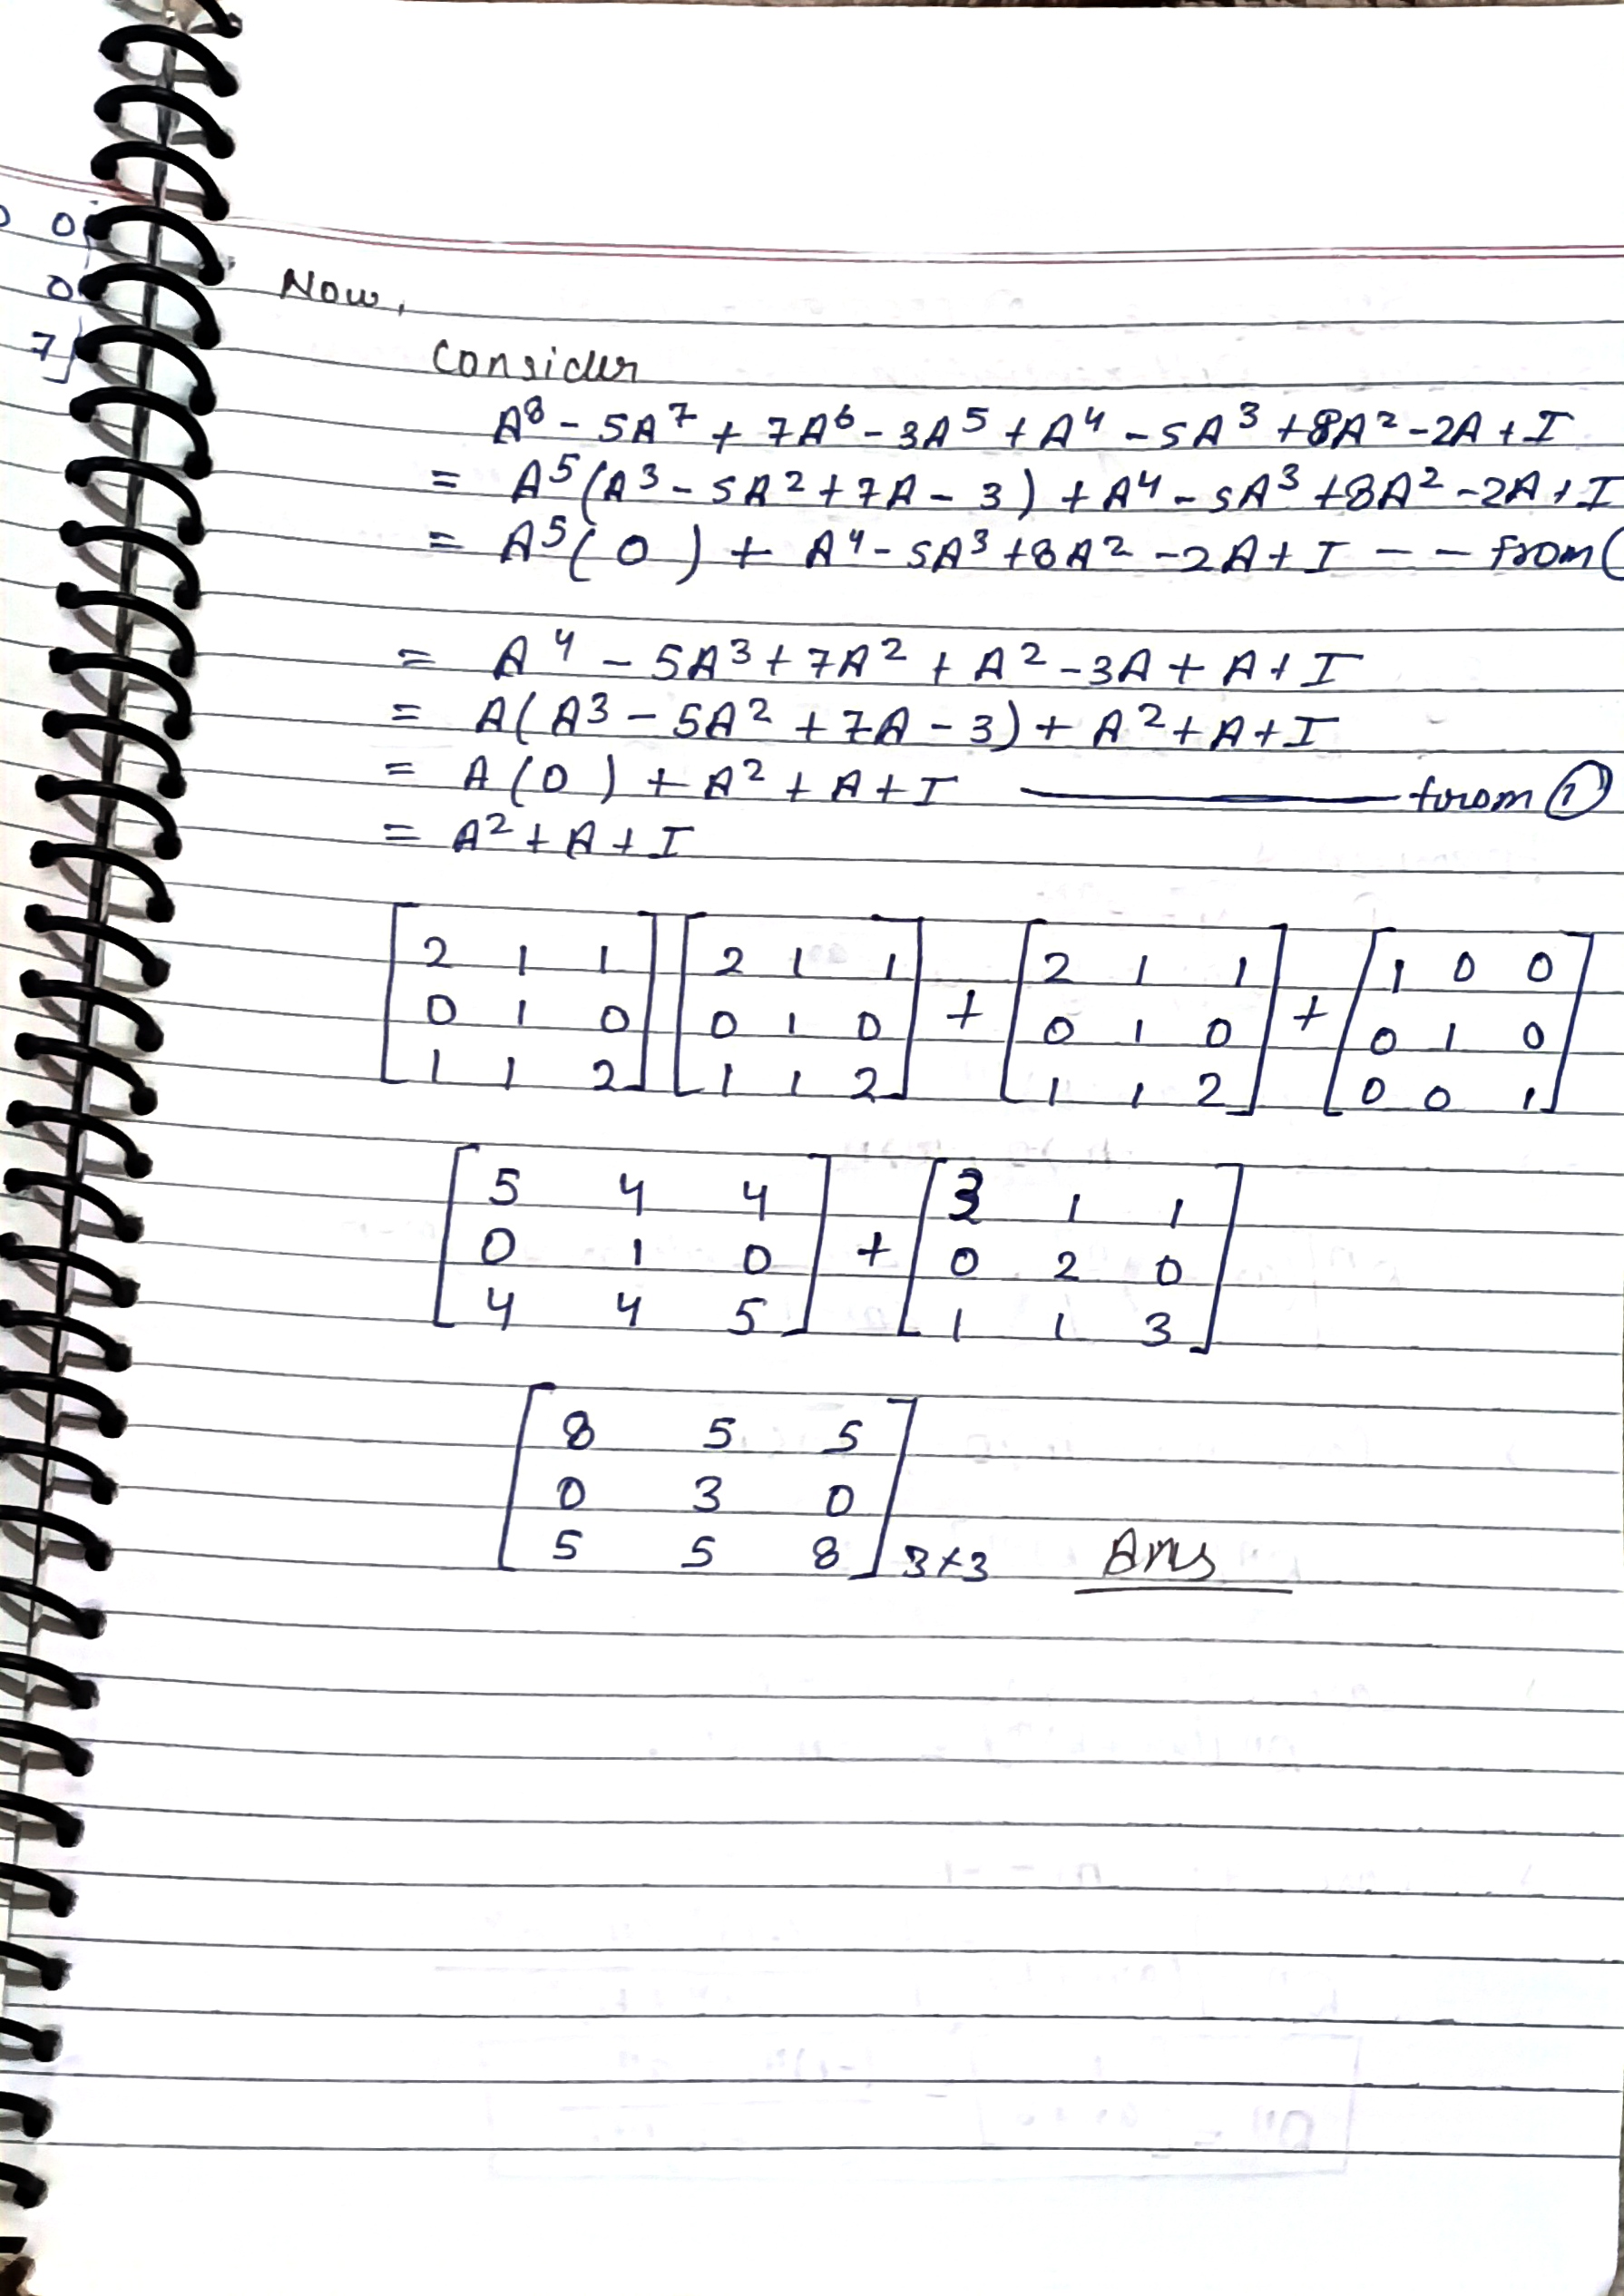 0
0
7]
Now,
Consider
A⁸ - 5A⁷ + 7A⁶ - 3A⁵ + A⁴ - 5A³ + 8A² - 2A + I
= A⁵(A³ - 5A² + 7A - 3) + A⁴ - 5A³ + 8A² - 2A + I
= A⁵(0) + A⁴ - 5A³ + 8A² - 2A + I - - from (
= A⁴ - 5A³ + 7A² + A² - 3A + A + I
= A(A³ - 5A² + 7A - 3) + A² + A + I
= A(0) + A² + A + I — from ①
= A² + A + I
[2 1 1] [2 1 1] + [2 1 1] + [1 0 0]
[0 1 0] [0 1 0] [0 1 0] [0 1 0]
[1 1 2] [1 1 2] [1 1 2] [0 0 1]
[5 4 4] + [3 1 1]
[0 1 0] [0 2 0]
[4 4 5] [1 1 3]
[8 5 5]
[0 3 0]
[5 5 8] 3×3 Ans